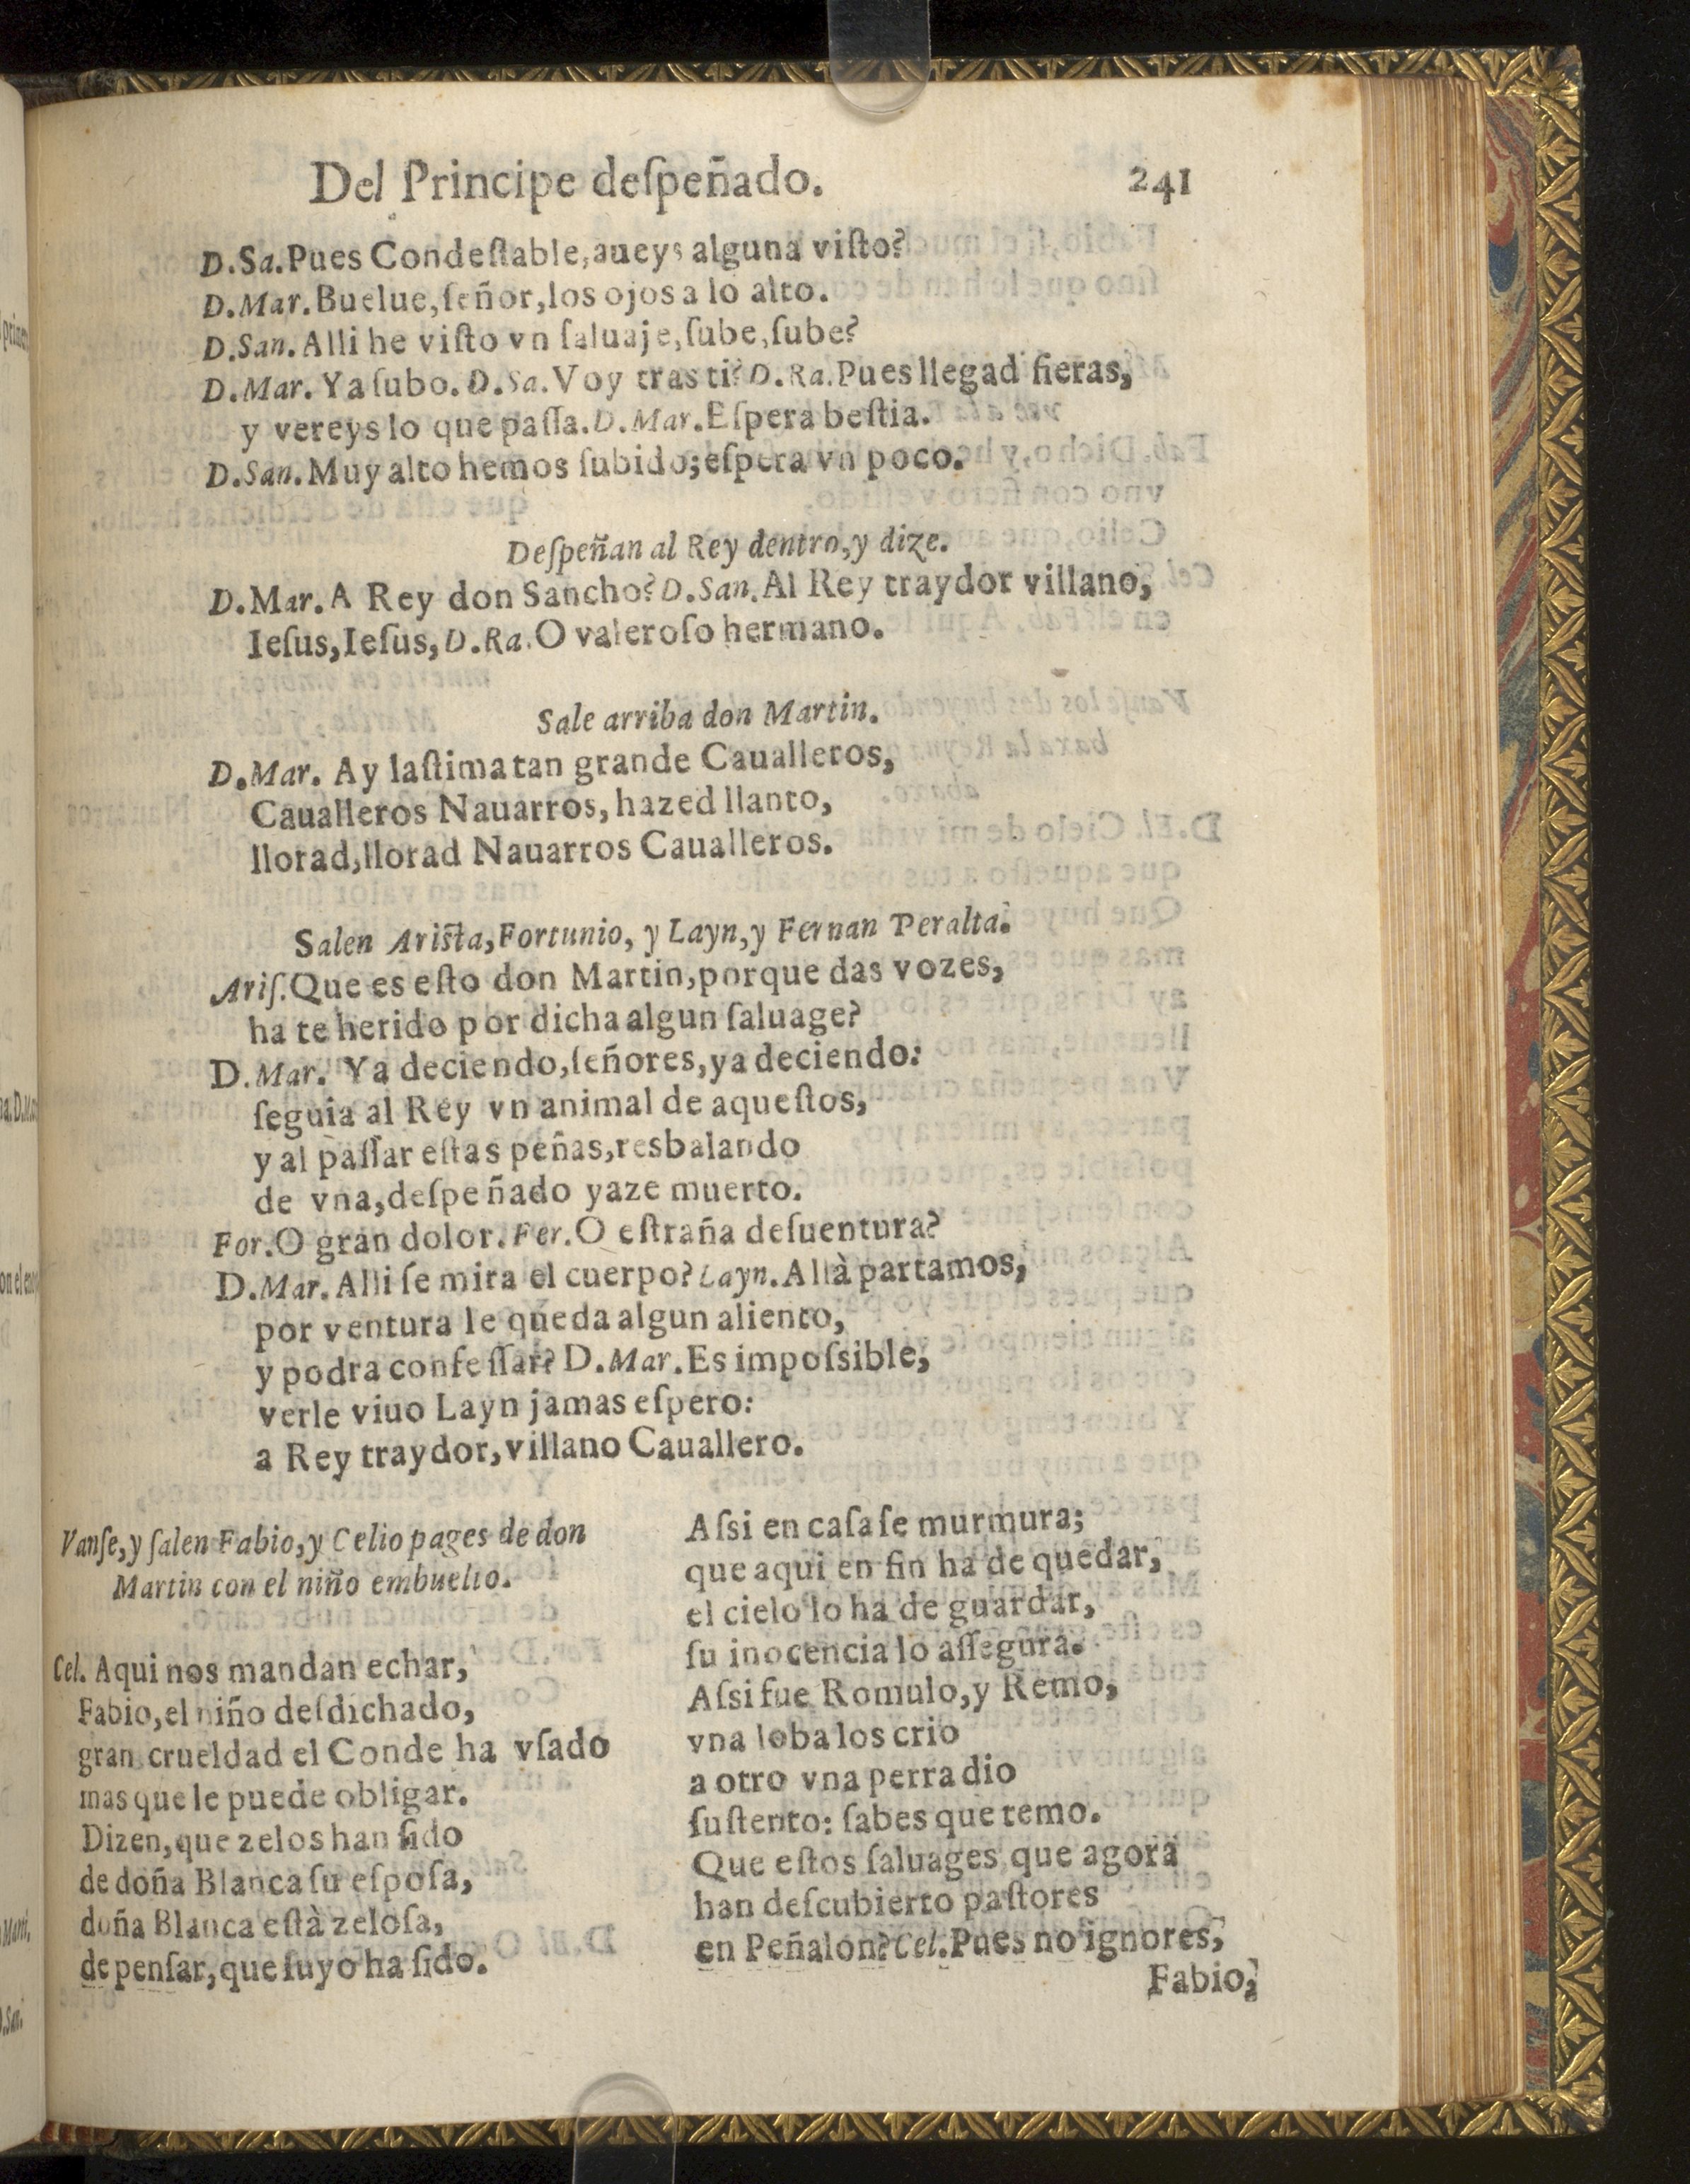 Del Principe deſpeñado. 241
D.Sa.Pues Condeſtable,aueys alguna viſto?
D.Mar.Buelue,ſeñor,los ojos a lo alto.
D.San.Alli he viſto vn ſaluaje,ſube,ſube?
D.Mar.Ya ſubo.D.Sa.Voy tras ti?D.Ra.Pues llegad fieras,
y vereys lo que paſſa.D.Mar.Eſpera beſtia.
D.San.Muy alto hemos ſubido;eſpera vn poco.
Deſpeñan al Rey dentro,y dize.
D.Mar.A Rey don Sancho?D.San.Al Rey traydor villano,
Ieſus,Ieſus,D.Ra.O valeroſo hermano.
Sale arriba don Martin.
D.Mar. Ay laſtima tan grande Caualleros,
Caualleros Nauarros, hazed llanto,
llorad,llorad Nauarros Caualleros.
Salen Ariſta,Fortunio, y Layn,y Fernan Peralta.
Ariſ.Que es eſto don Martin,porque das vozes,
ha te herido por dicha algun ſaluage?
D.Mar. Ya deciendo,ſeñores,ya deciendo:
ſeguia al Rey vn animal de aqueſtos,
y al paſſar eſtas peñas,resbalando
de vna,deſpeñado yaze muerto.
For.O gran dolor.Fer.O eſtraña deſuentura?
D.Mar.Alli ſe mira el cuerpo?Layn.Allà partamos,
por ventura le queda algun aliento,
y podra confeſſar? D.Mar.Es impoſsible,
verle viuo Layn jamas eſpero:
a Rey traydor,villano Cauallero.
Vanſe,y ſalen Fabio,y Celio pages de don
Martin con el niño embuelto.
Cel. Aqui nos mandan echar,
Fabio,el niño deſdichado,
gran crueldad el Conde ha vſado
mas que le puede obligar.
Dizen,que zelos han ſido
de doña Blanca ſu eſpoſa,
doña Blanca eſtà zeloſa,
de penſar,que ſuyo ha ſido.
Aſsi en caſa ſe murmura;
que aqui en fin ha de quedar,
el cielo lo ha de guardar,
ſu inocencia lo aſſegura.
Aſsi fue Romulo,y Remo,
vna loba los crio
a otro vna perra dio
ſuſtento: ſabes que temo.
Que eſtos ſaluages que agora
han deſcubierto paſtores
en Peñalon?Cel.Pues no ignores,
Fabio,